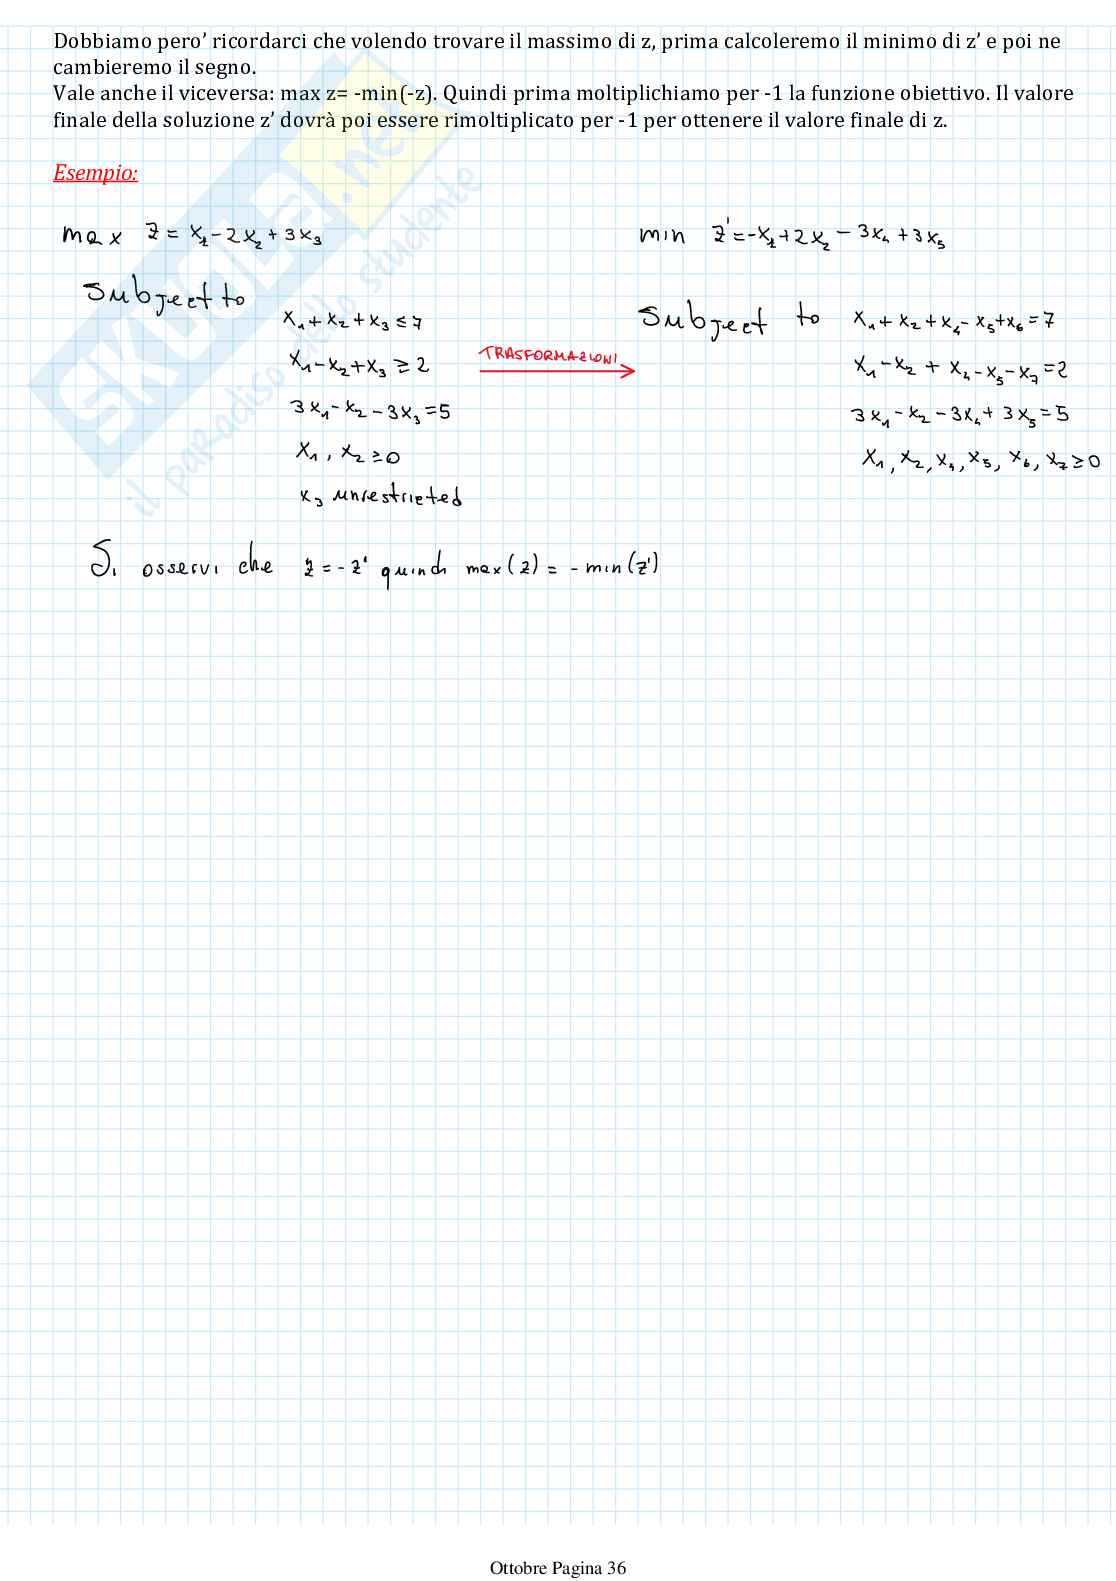 Dobbiamo pero’ ricordarci che volendo trovare il massimo di z, prima calcoleremo il minimo di z’ e poi ne
cambieremo il segno.
Vale anche il viceversa: max z= -min(-z). Quindi prima moltiplichiamo per -1 la funzione obiettivo. Il valore
finale della soluzione z’ dovrà poi essere rimoltiplicato per -1 per ottenere il valore finale di z.
Esempio:
max z = x₁ - 2x₂ + 3x₃
Subject to
x₁ + x₂ + x₃ ≤ 7
x₁ - x₂ + x₃ ≥ 2
3x₁ - x₂ - 3x₃ = 5
x₁, x₂ ≥ 0
x₃ unrestricted
TRASFORMAZIONI
min z' = -x₁ + 2x₂ - 3x₄ + 3x₅
Subject to x₁ + x₂ + x₄ - x₅ + x₆ = 7
x₁ - x₂ + x₄ - x₅ - x₇ = 2
3x₁ - x₂ - 3x₄ + 3x₅ = 5
x₁, x₂, x₄, x₅, x₆, x₇ ≥ 0
Si osservi che z = - z' quindi max(z) = - min(z')
SKUOLA.net
il paradiso dello studente
Ottobre Pagina 36